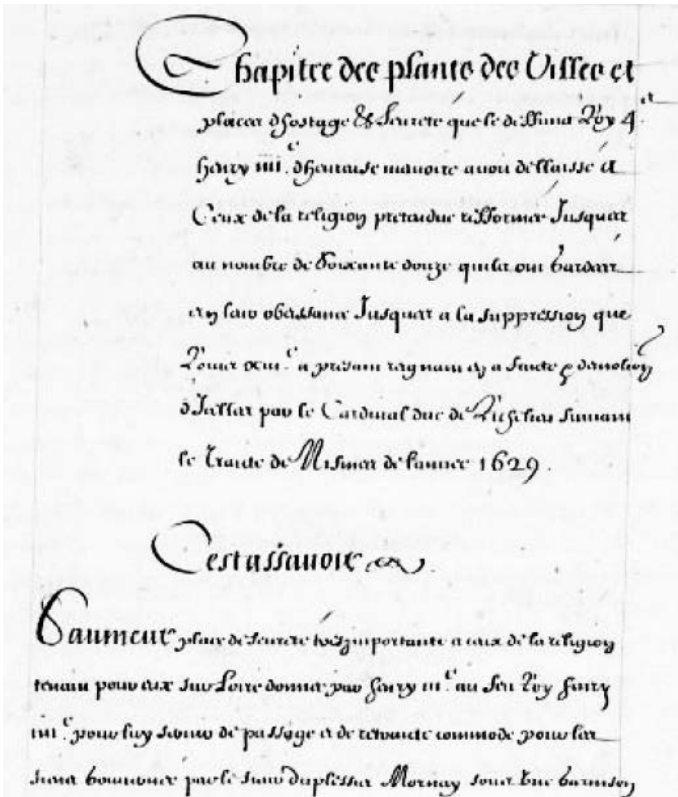 Chapitre des plants des Villes et
places dhostage & seureté que le deffunct Roy
henry iiii.e dheureuse memoire avoit dellaissé a
Ceux de la religion pretendue refformee Jusques
au nombre de soixante douze quilz ont gardees
en leur obeissance Jusques a la suppression que
Louis xiii.e a present regnant en a faicte & demolition
dIcelles par le Cardinal duc de Richelieu suivant
le traicte de Nismes de lannee 1629.
Cestassavoir
Saumeur place de seureté tres importante a ceux de la religion
tenant pour eux sur Loire donnee par henry iii.e au feu Roy henry
iiii.e pour luy servir de passage et de retraicte commode pour les
siens gouvernee par le sieur duplessis Mornay soubz une garnison